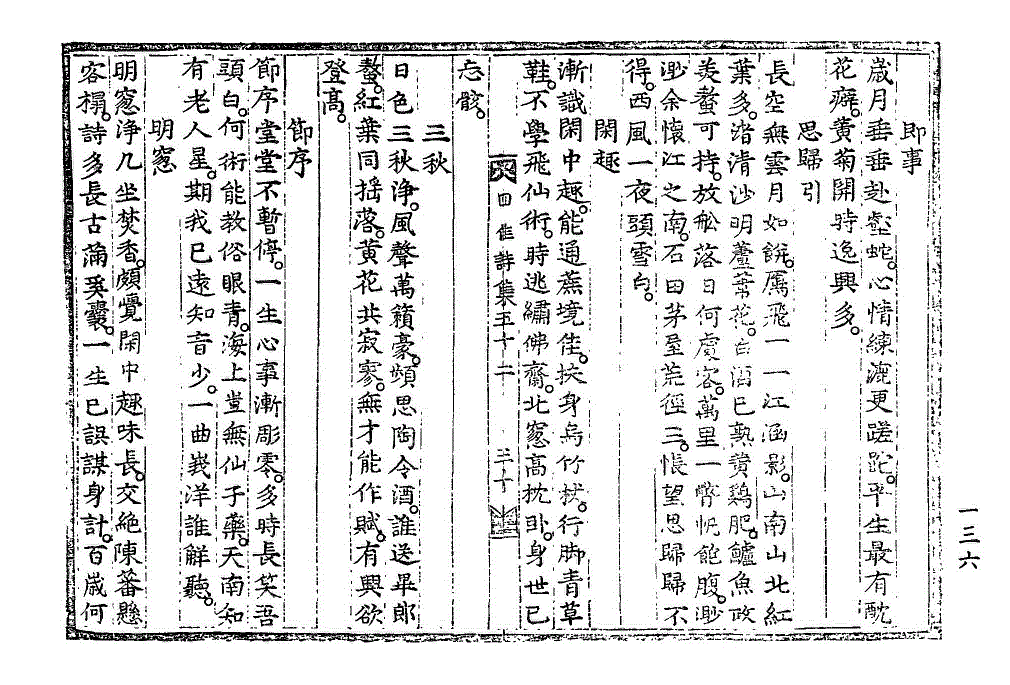 即事
歲月垂垂赴壑蛇心情練漉更蹉跎平生最有酖
花癖黃菊開時逸興多
思歸引
長空無雲月如餠鴈飛一一江涵影山南山北紅
葉多渚清沙明蘆葉花白酒已熟黃鷄肥鱸魚政
美螯可持放舩落日何處客萬里一嚮帆飽腹渺
渺余懷江之南石田茅屋荒徑三悵望思歸歸不
得西風一夜頭雪白
閑趣
漸識閑中趣能通蔗境佳扶身烏竹杖行脚青草
鞋不學飛仙術時逃繡佛齋北窓高枕卧身世已
四佳詩集五十二 三十
忘骸
三秋
日色三秋淨風聲萬籟豪頻思陶令酒誰送畢郎
螯紅葉同搖落黃花共寂寥無才能作賦有興欲
登高
節序
節序堂堂不暫停一生心事漸彫零多時長笑吾
頭白何術能教俗眼青海上豈無仙子藥天南知
有老人星期我已遠知音少一曲峩洋誰解聽
明窓
明窓淨几坐焚香頗覺閑中趣味長交絶陳蕃懸
客榻詩多長吉滿奚囊一生已誤謀身計百歲何
一三六